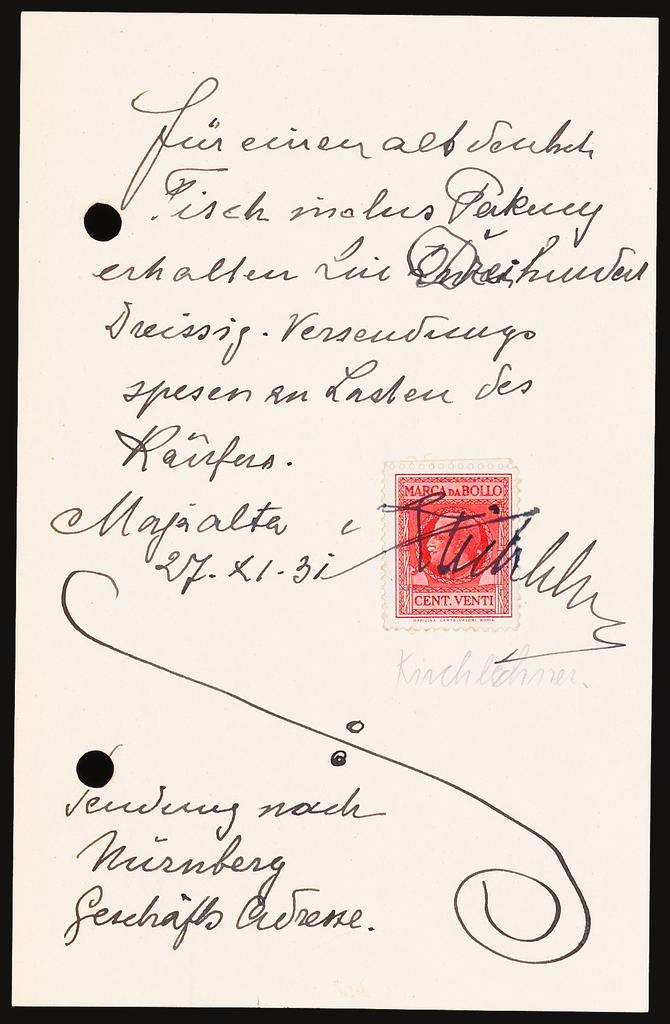 für einen altdeutsch
Tisch inclus Pakung
erhalten Lire Dreihundert
Dreissig. Versendungs
spesen zu Lasten des
Käufers.
Maja alta
27. XI. 31
MARCA DA BOLLO
CENT. VENTI
OFFICINA CARTE-VALORI ROMA
Kirchlechner.
Sendung nach
Nürnberg
Geschäfts Adresse.